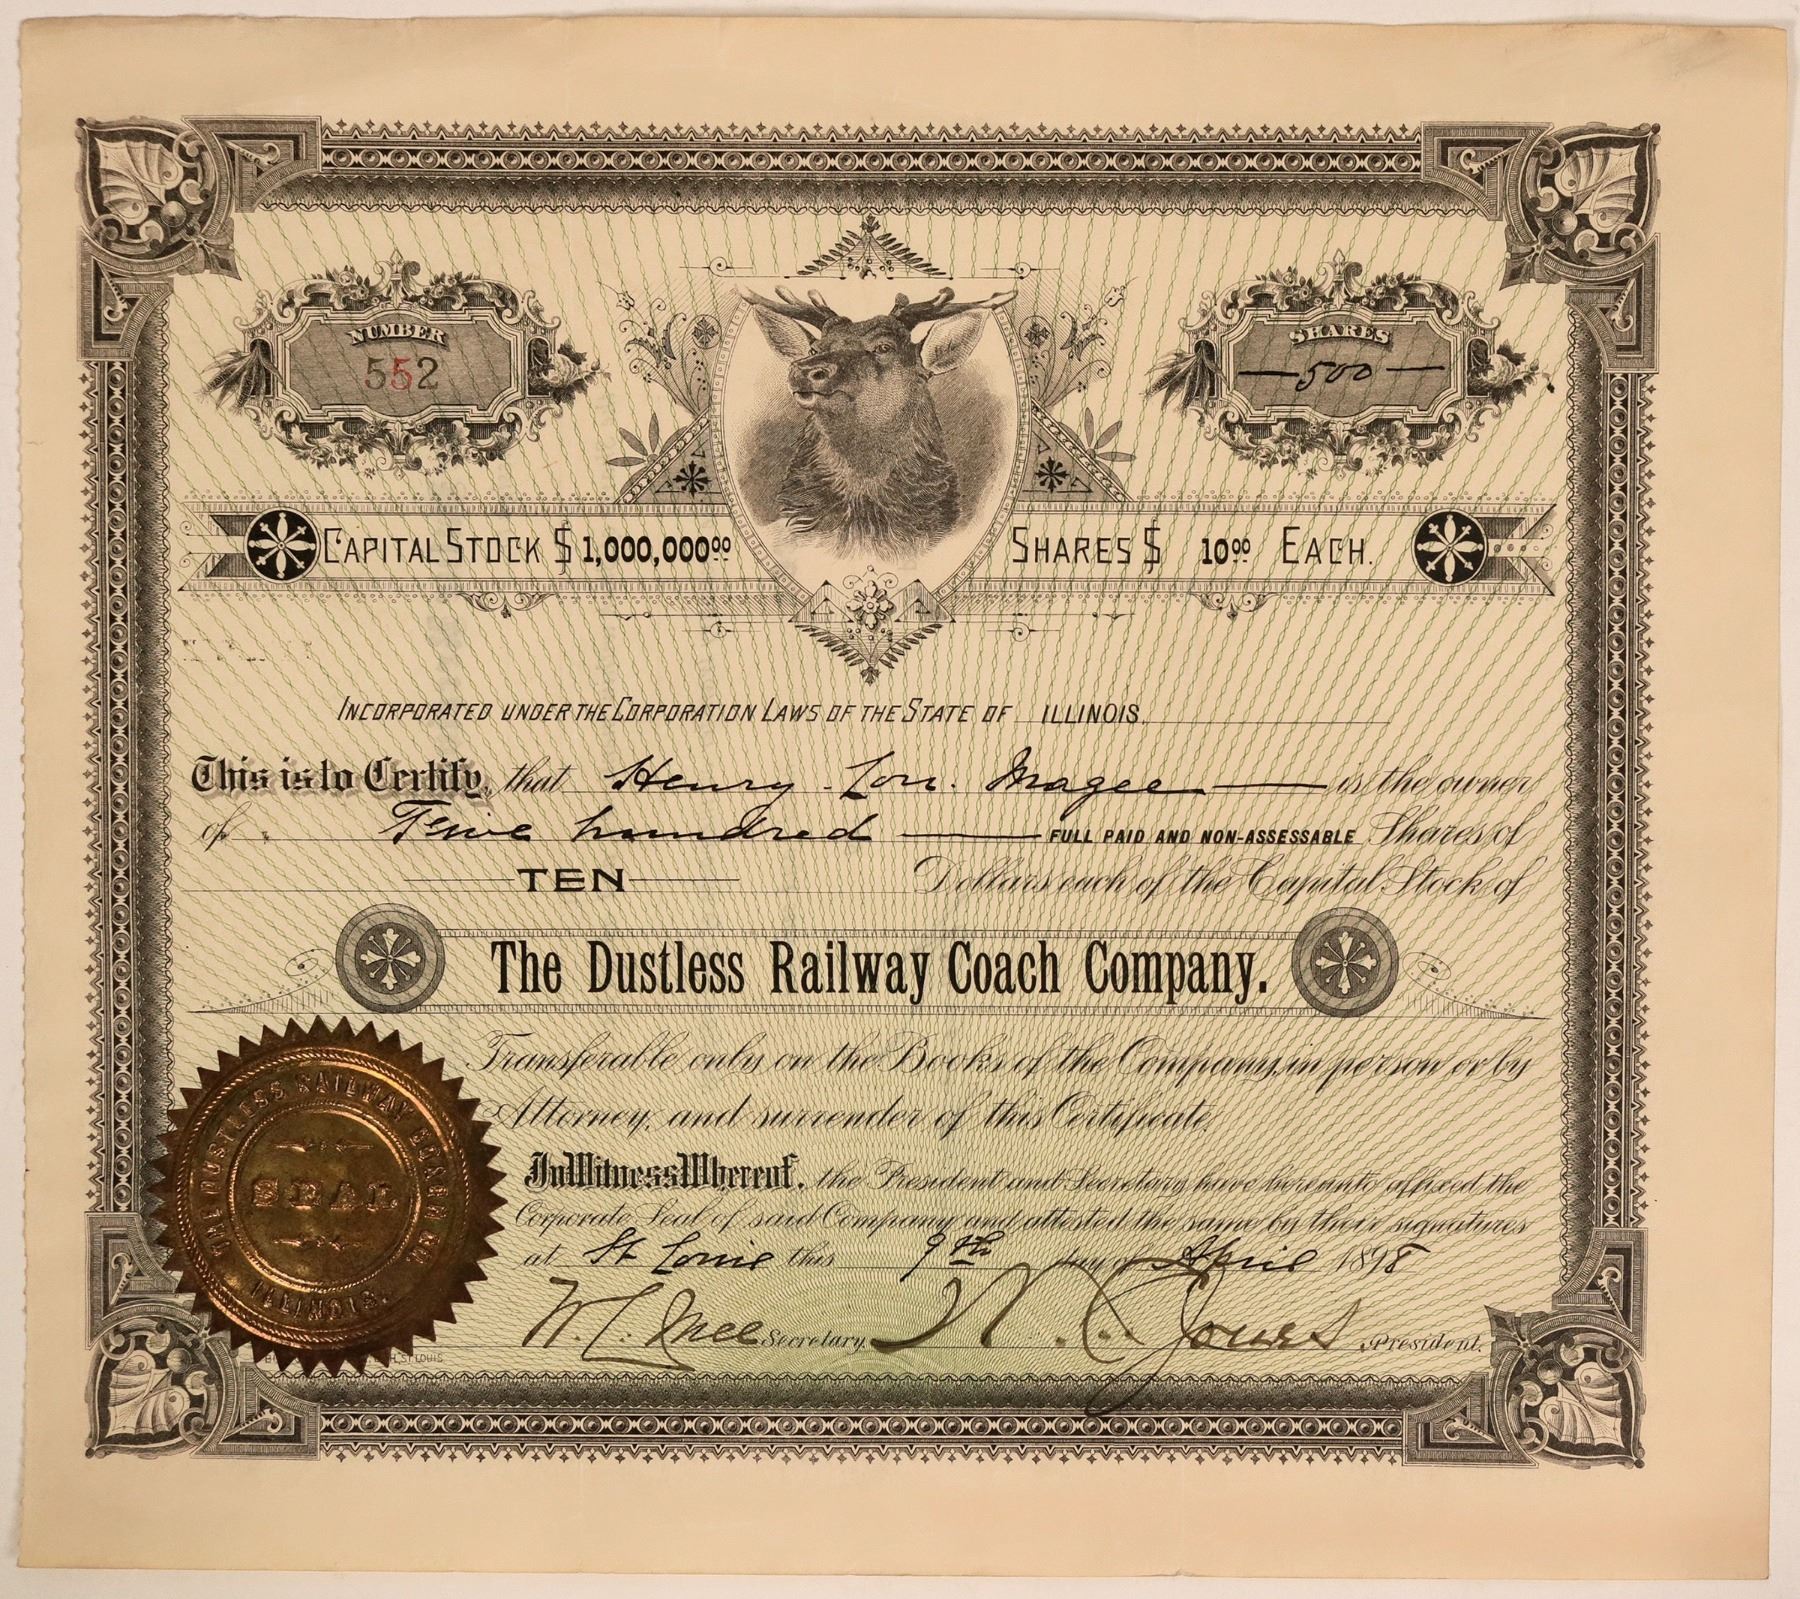 NUMBER
552
SHARES
500
CAPITAL STOCK $1,000,000.00
SHARES $ 10.00 EACH.
INCORPORATED UNDER THE CORPORATION LAWS OF THE STATE OF ILLINOIS.
This is to Certify, that Henry Lou. Magee is the owner
of Five hundred FULL PAID AND NON-ASSESSABLE Shares of
TEN Dollars each of the Capital Stock of
The Dustless Railway Coach Company.
Transferable only on the Books of the Company, in person or by
Attorney, and surrender of this Certificate.
In Witness Whereof, the President and Secretary have hereunto affixed the
Corporate Seal of said Company and attested the same by their signatures
at St Louis this 9th day of April 1898
W. L. Mcee Secretary. N. C. Jones President.
THE DUSTLESS RAILWAY COACH CO.
SEAL
ILLINOIS.
ST LOUIS